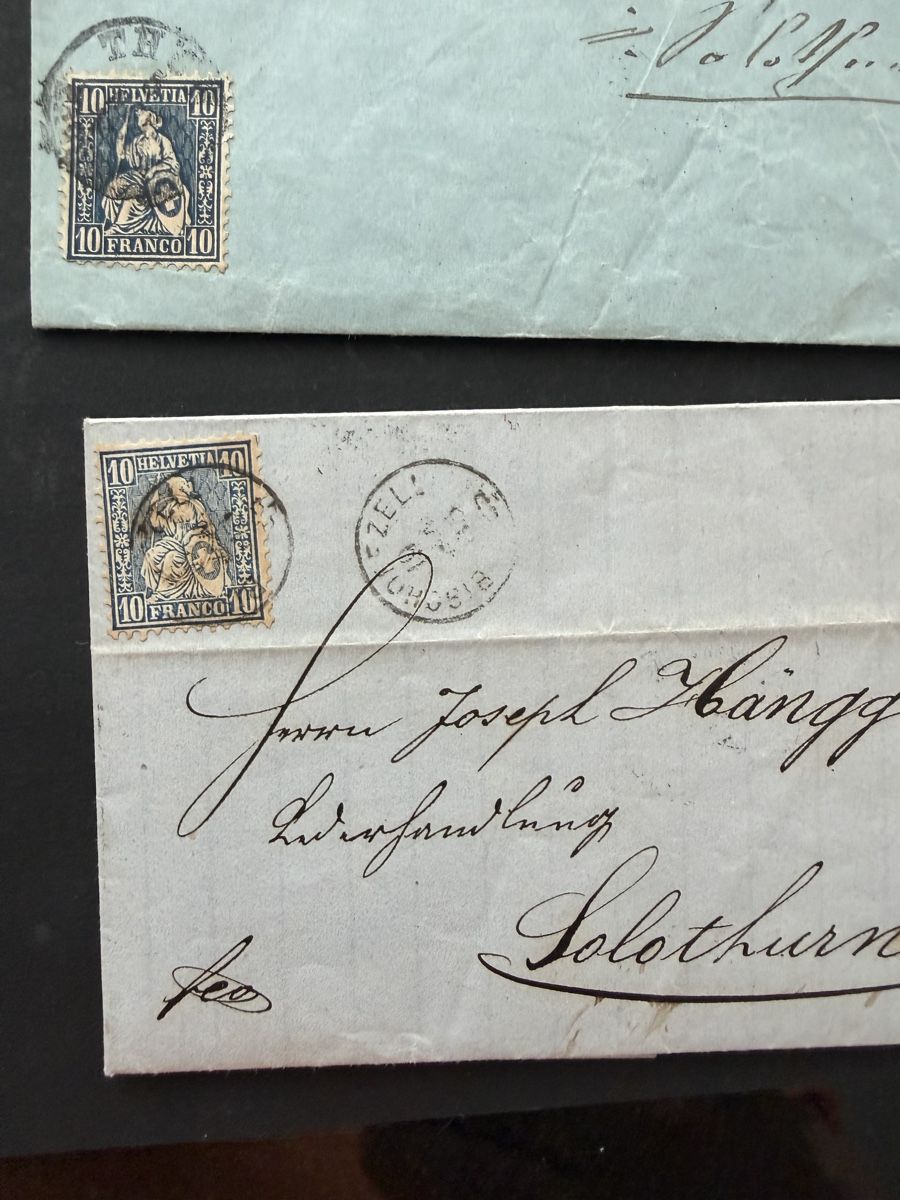 10 HELVETIA 10
10 FRANCO 10
10 HELVETIA 10
10 FRANCO 10
BISCHOFSZELL
Herrn Joseph Hängg
Lederhandlung
Solothurn
fco